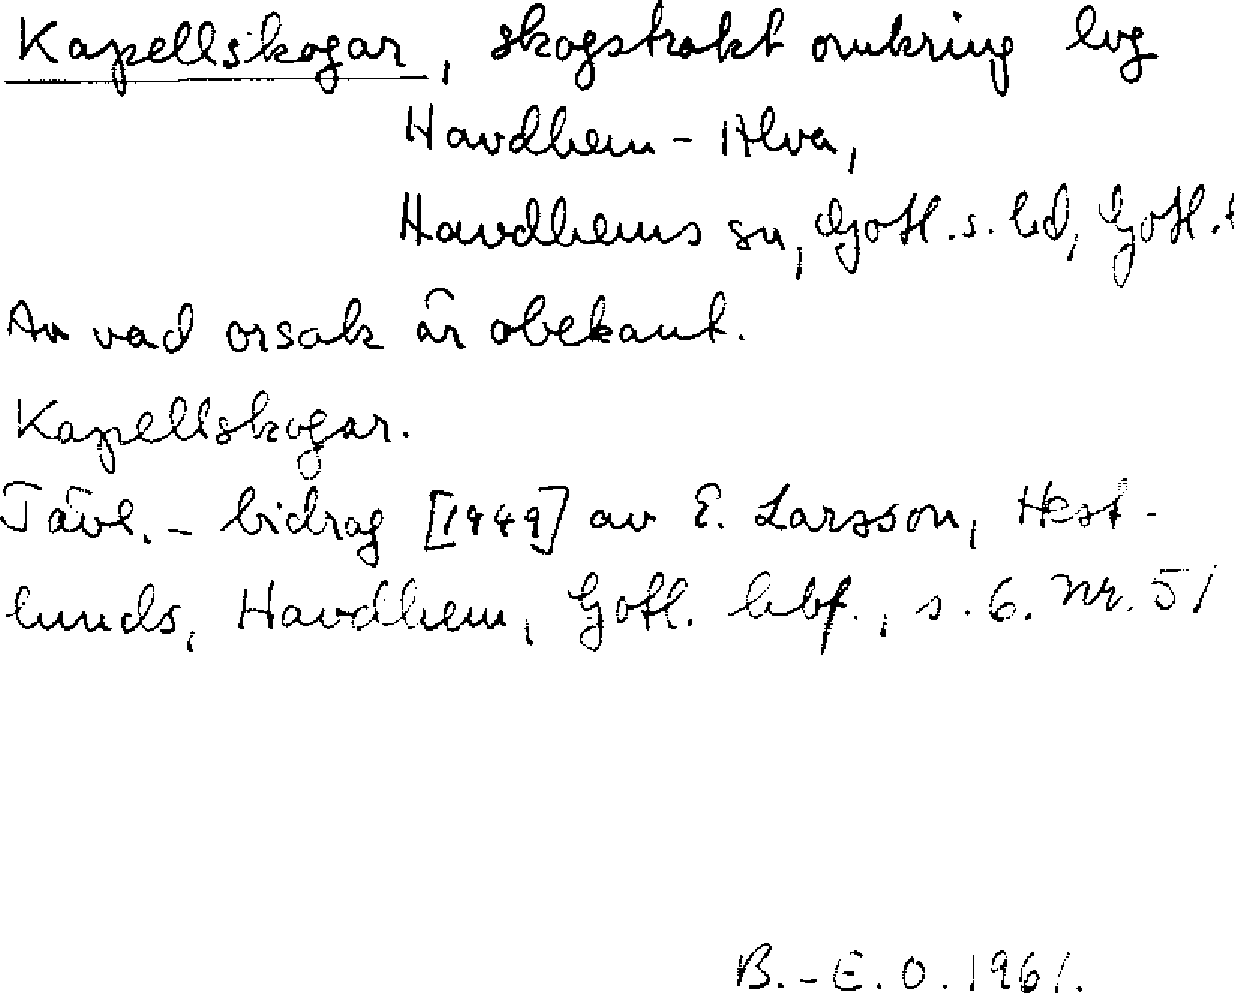 Kapellskogar, skogstrakt omkring lvg
Havdhem - Alva,
Havdhems sn, Gotl. s. hd, Gotl. l
Av vad orsak är obekant.
Kapellskogar.
Tävl. - bidrag [1949] av E. Larsson, Hest-
lunds, Havdhem, Gotl. hbf., s. 6. nr. 51
B.-E.O. 1961.